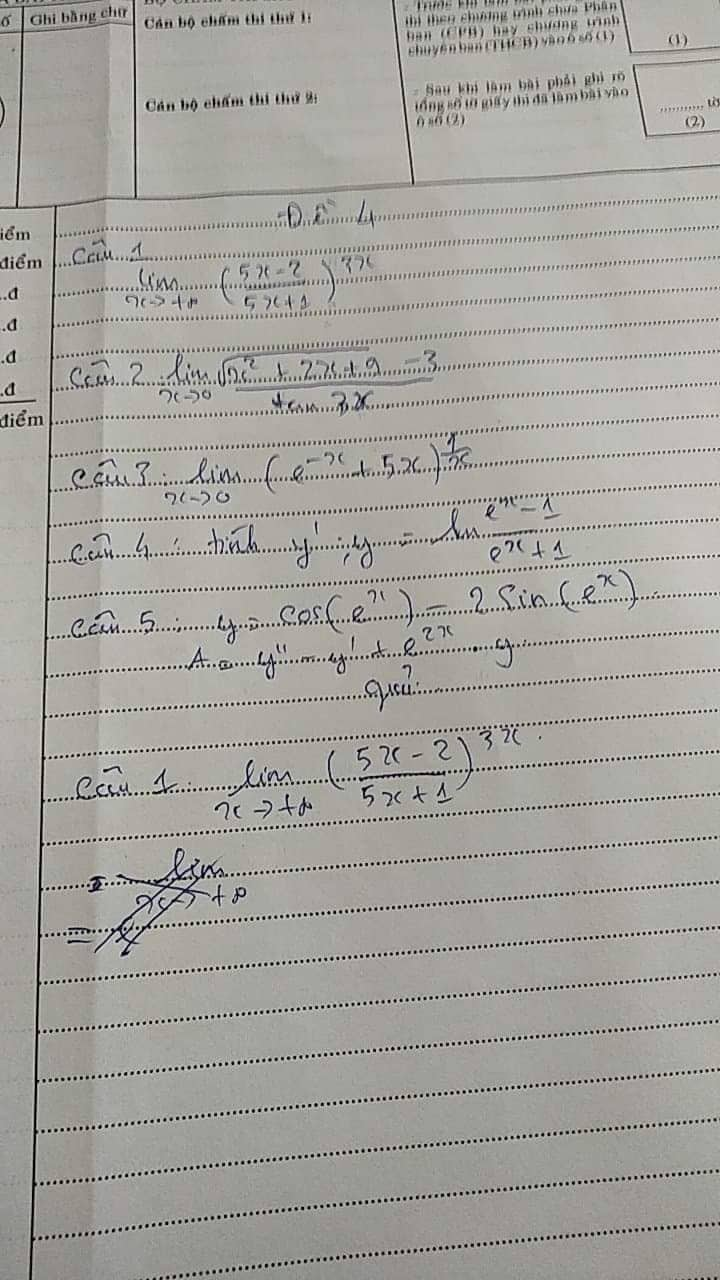 ố
Ghi bằng chữ
Cán bộ chấm thi thứ 1:
thi theo chương trình chưa Phân
ban (CPB) hay chương trình
chuyên ban (THCB) vào ô số (1)
(1)
Cán bộ chấm thi thứ 2:
- Sau khi làm bài phải ghi rõ
tổng số tờ giấy thi đã làm bài vào
ô số (2)
............ tờ
(2)
iểm
điểm
.đ
.đ
.đ
.đ
điểm
Đề 4
Câu 1
lim x→+∞ (5x-2 / 5x+1)^3x
Câu 2: lim x→0 √x² + 2x + 9 - 3 / tan 3x
Câu 3: lim x→0 (e^-x + 5x)^1/x
Câu 4: tính y'; y = ln e^x - 1 / e^x + 1
Câu 5: y = cos(e^x) - 2 sin(e^x)
A = y'' - y' + e^2x . y
giải:
Câu 1: lim x→+∞ (5x - 2 / 5x + 1)^3x
= lim x→+∞
=